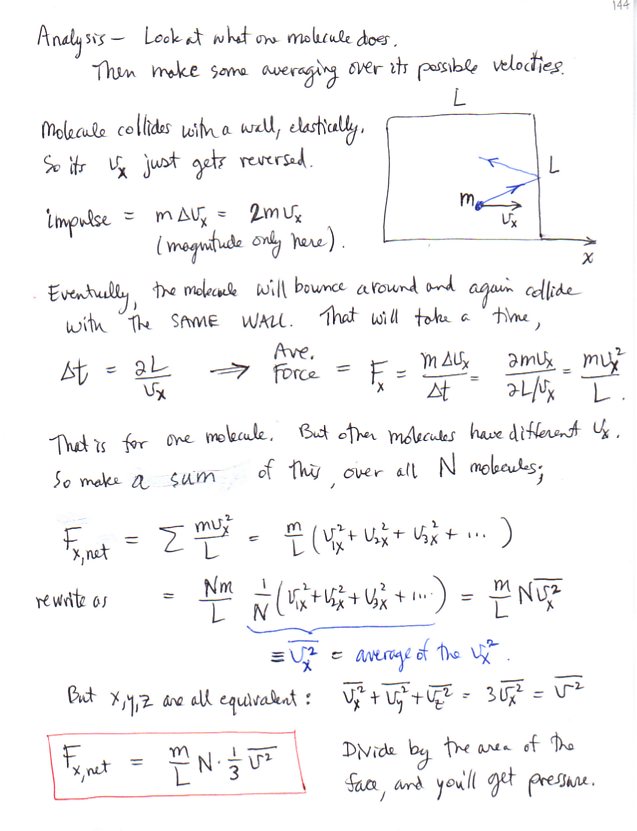 144
Analysis – Look at what one molecule does.
Then make some averaging over its possible velocities.
L
Molecule collides with a wall, elastically.
So its vₓ just gets reversed.
L
m
vₓ
x
impulse = m Δvₓ = 2mvₓ
(magnitude only here).
Eventually, the molecule will bounce around and again collide
with the SAME WALL. That will take a time,
Δt = 2L/vₓ ⟹ Ave. Force = Fₓ = mΔvₓ/Δt = 2mvₓ/(2L/vₓ) = mvₓ²/L.
That is for one molecule. But other molecules have different vₓ.
So make a sum of this, over all N molecules;
F_{x,net} = Σ mvₓ²/L = m/L (v₁ₓ² + v₂ₓ² + v₃ₓ² + ...)
rewrite as = Nm/L 1/N (v₁ₓ² + v₂ₓ² + v₃ₓ² + ...) = m/L N \overline{vₓ²}
≡ \overline{vₓ²} = average of the vₓ².
But x,y,z are all equivalent: \overline{vₓ²} + \overline{v_y²} + \overline{v_z²} = 3\overline{vₓ²} = \overline{v²}
F_{x,net} = m/L N · 1/3 \overline{v²}
Divide by the area of the
face, and you'll get pressure.